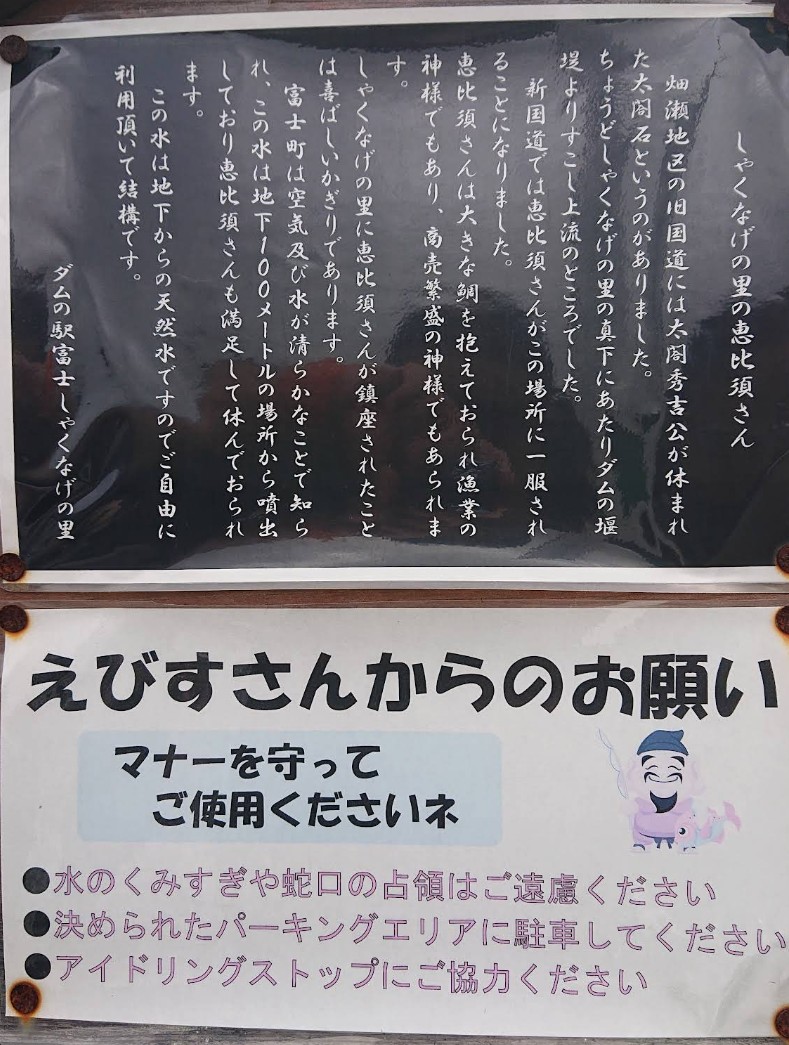 しゃくなげの里の恵比須さん
畑瀬地区の旧国道には太閤秀吉公が休まれ
た太閤石というのがありました。
ちょうどしゃくなげの里の真下にあたりダムの堰
堤よりすこし上流のところでした。
新国道では恵比須さんがこの場所に一服され
ることになりました。
恵比須さんは大きな鯛を抱えておられ漁業の
神様でもあり、商売繁盛の神様でもあられま
す。
しゃくなげの里に恵比須さんが鎮座されたこと
は喜ばしいかぎりであります。
富士町は空気及び水が清らかなことで知ら
れ、この水は地下100メートルの場所から噴出
しており恵比須さんも満足して休んでおられ
ます。
この水は地下からの天然水ですのでご自由に
利用頂いて結構です。
ダムの駅富士しゃくなげの里
えびすさんからのお願い
マナーを守って
ご使用くださいネ
●水のくみすぎや蛇口の占領はご遠慮ください
●決められたパーキングエリアに駐車してください
●アイドリングストップにご協力ください